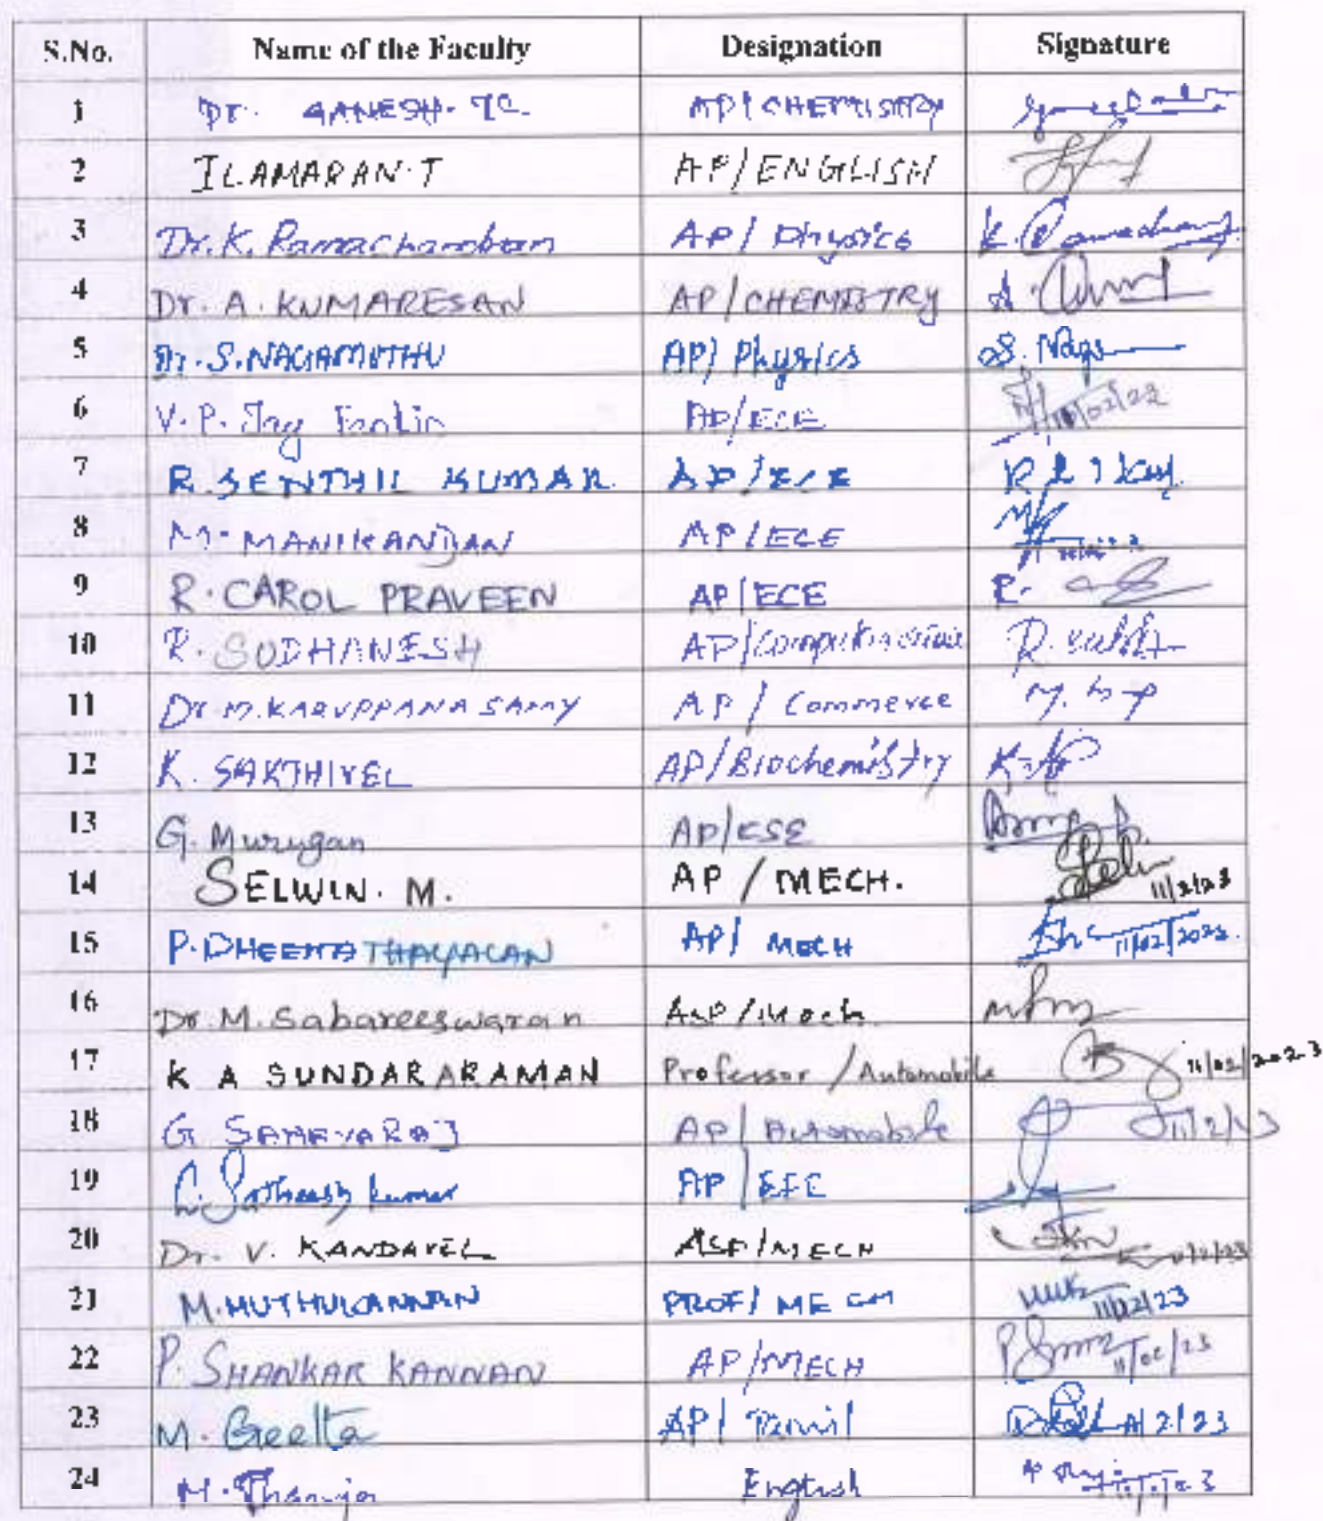 S.No. Name of the Faculty Designation Signature
1 Dr. GANESH. AP/CHEMISTRY
2 ILAMARAN.T AP/ENGLISH
3 Dr. K. Ramachandran AP/ Physics K. Ramachan
4 Dr. A. KUMARESAN AP/CHEMISTRY A.
5 Dr. S. NAGAMUTHU AP/ Physics S. Nage
6 V.P. Jay AP/ECE
7 R. SENTHIL KUMAR. AP/ECE
8 M. MANIKANDAN AP/ECE
9 R. CAROL PRAVEEN AP/ECE R.
10 R. SUDHANESH AP/ R.
11 Dr M. KARUPPANA SAMY AP/ Commerce M.
12 K. SAKTHIVEL AP/Biochemistry
13 G. Murugan AP/CSE
14 SELWIN. M. AP / MECH. 11/2/23
15 P. DHEENATHAYALAN AP/ MECH 11/02/2023.
16 Dr. M. Sabareeswaran AsP/Mech.
17 K A SUNDARARAMAN Professor /Automobile 11/02/2023
18 G. AP/ Automobile 11/2/23
19 Satheesh kumar AP/EEE
20 Dr. V. KANDAVEL ASP/MECH 11/2/23
21 M. MUTHUKANNAN PROF/ MECH 11/02/23
22 P. SHANKAR KANNAN AP/MECH 11/02/23
23 M. Geetha AP/ Tamil 11/2/23
24 M. English